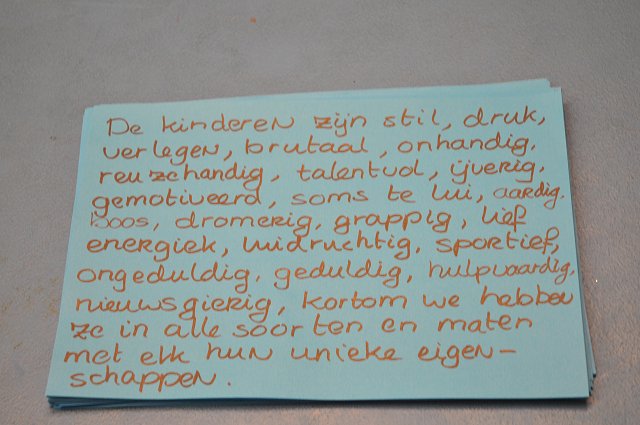 De kinderen zijn stil, druk,
verlegen, brutaal, onhandig,
reuzehandig, talentvol, ijverig,
gemotiveerd, soms te lui, aardig,
boos, dromerig, grappig, lief
energiek, luidruchtig, sportief,
ongeduldig, geduldig, hulpvaardig,
nieuwsgierig, kortom we hebben
ze in alle soorten en maten
met elk hun unieke eigen-
schappen.